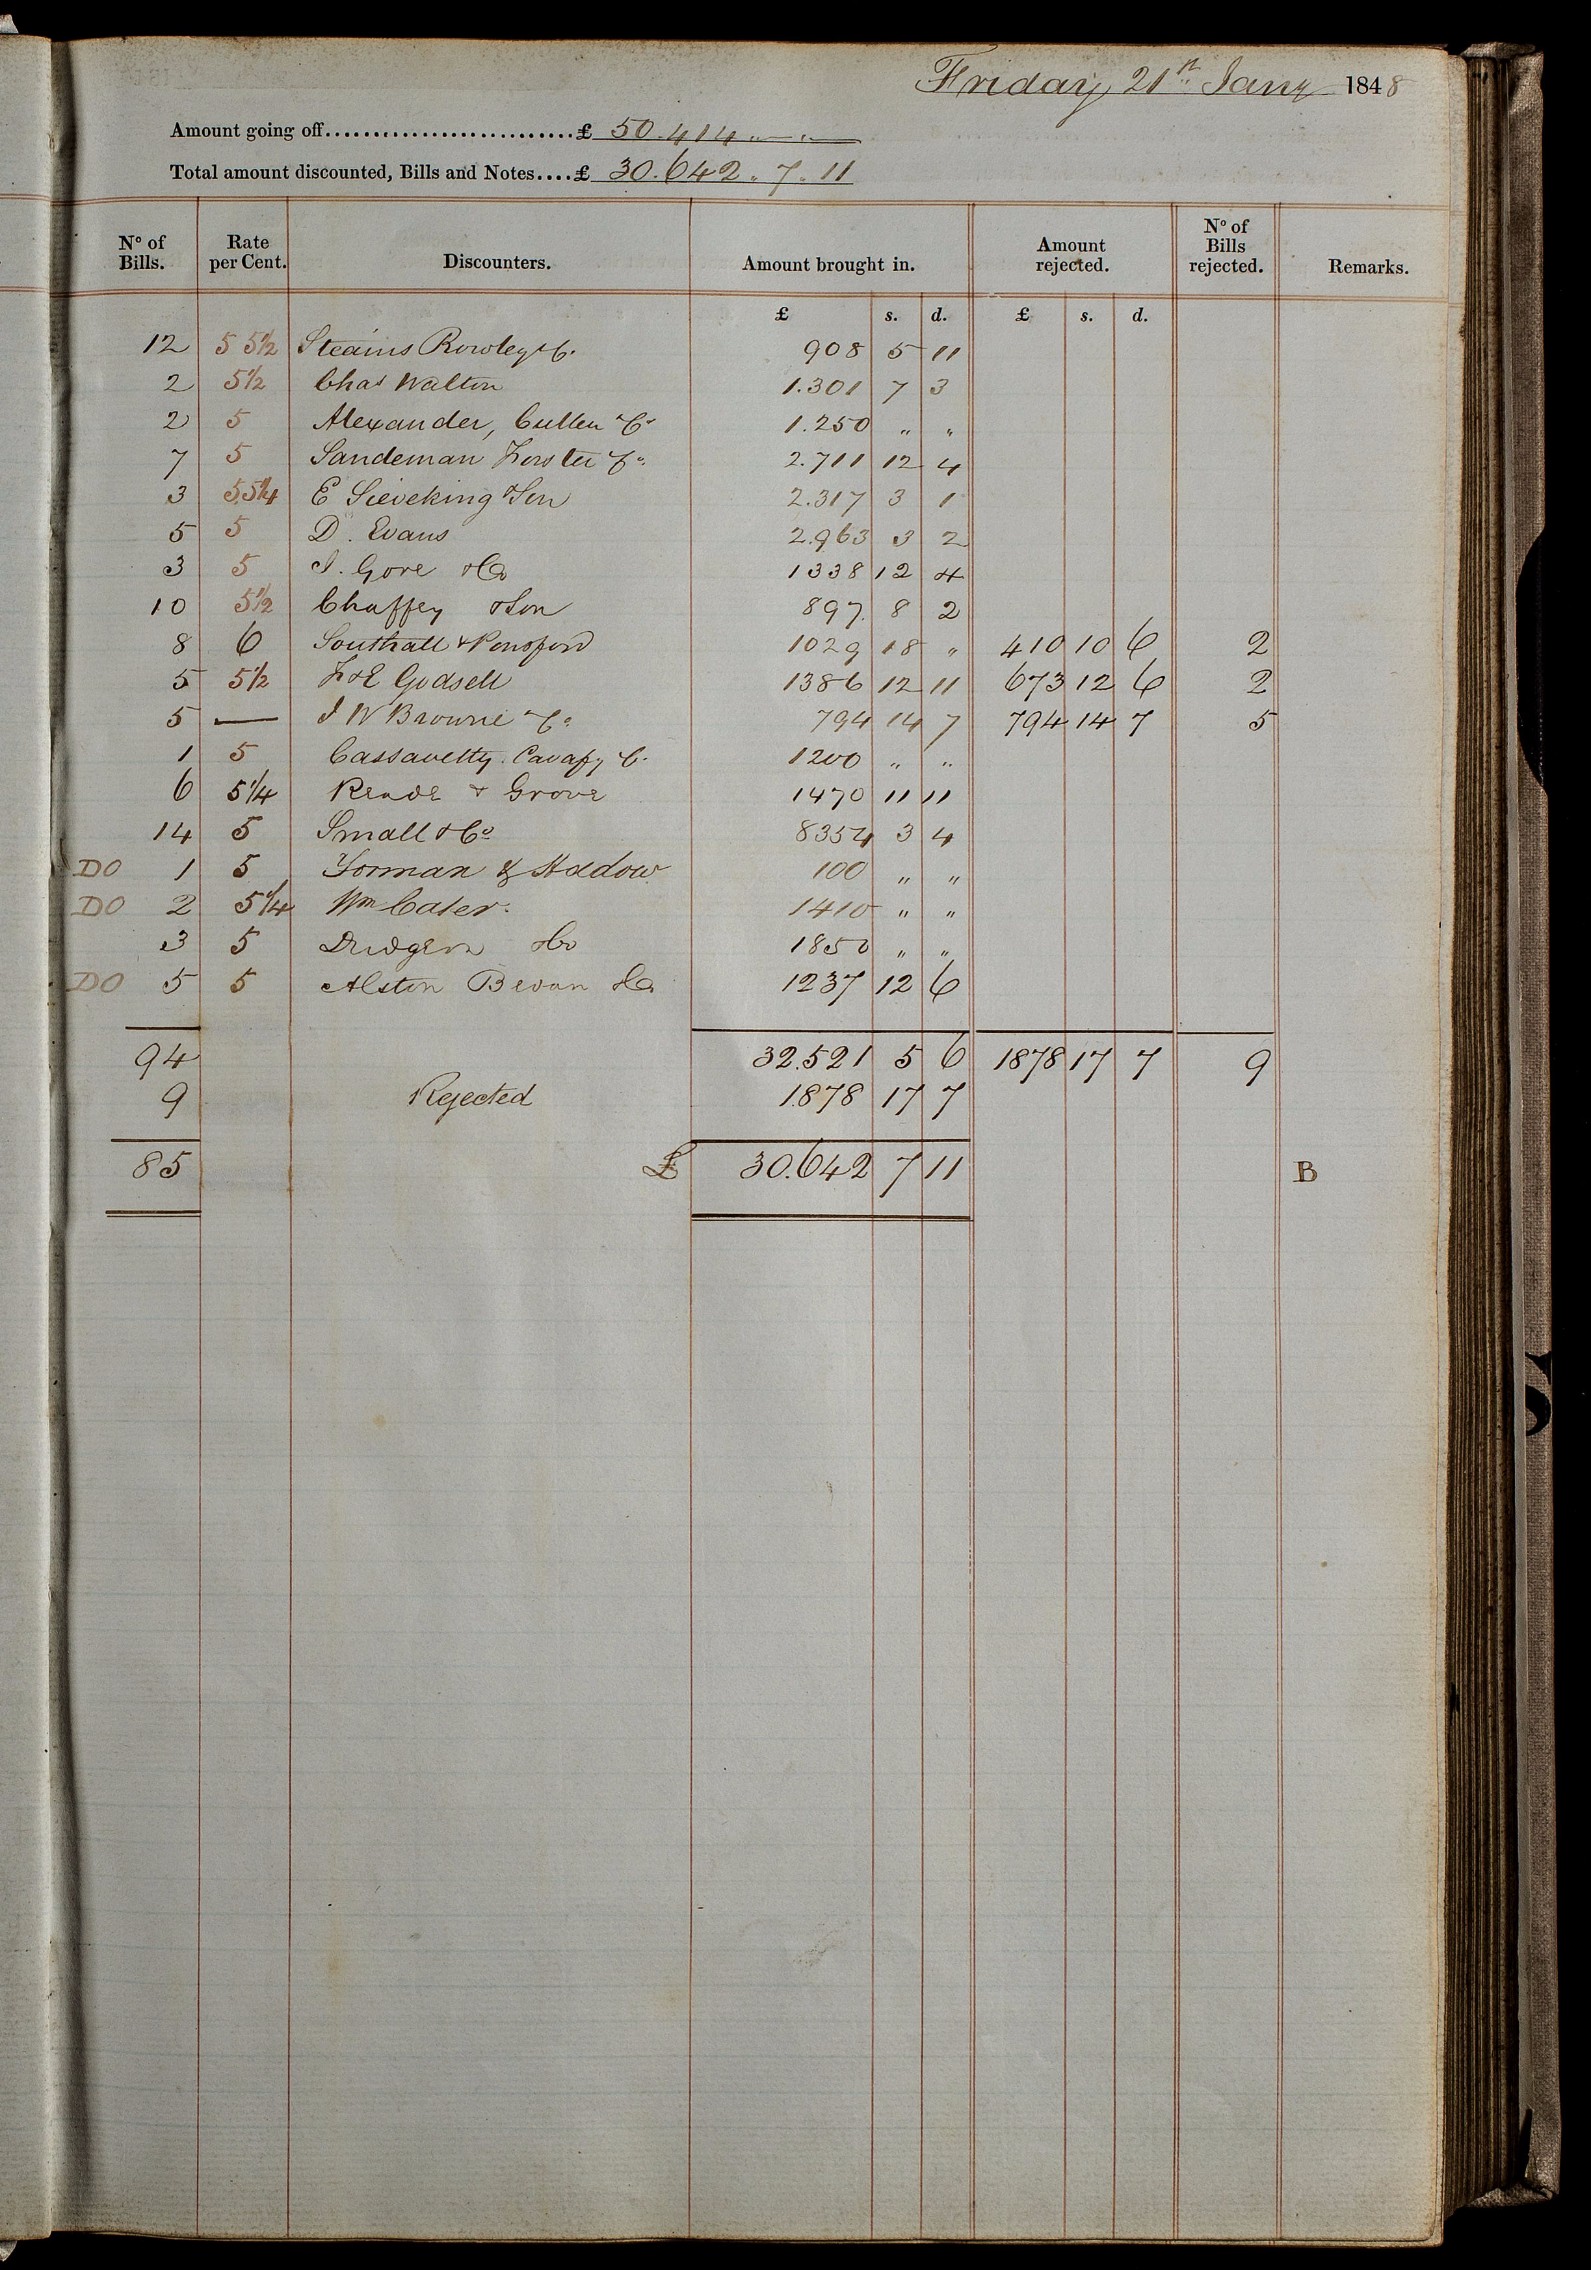 Friday 21st Jany 1848
Amount going off..........................£ 50.414 „ — „
Total amount discounted, Bills and Notes....£ 30.642 „ 7 „ 11
No of Bills. Rate per Cent. Discounters. Amount brought in. Amount rejected. No of Bills rejected. Remarks.
£ s. d. £ s. d.
12 5 5½ Steains Rowley & Co 908 5 11
2 5½ Chas Walton 1.301 7 3
2 5 Alexander, Cullen & Co 1.250 „ „
7 5 Sandeman Forster & Co 2.711 12 4
3 5 5¼ E Sieveking & Son 2.317 3 1
5 5 D. Evans 2.963 3 2
3 5 J. Gore & Co 1338 12 4
10 5½ Chaffey & Son 897. 8 2
8 6 Southall & Ponsford 1029 18 „ 410 10 6 2
5 5½ F & E Godsell 1386 12 11 673 12 6 2
5 — J W Browne & Co 794 14 7 794 14 7 5
1 5 Cassavetty. Cavafy & Co 1200 „ „
6 5¼ Reade & Grove 1470 11 11
14 5 Small & Co 8354 3 4
DO 1 5 Forman & Hadow 100 „ „
DO 2 5¼ Wm Cater. 1410 „ „
3 5 Dudgeon & Co 1850 „ „
DO 5 5 Alston Bevan & Co 1237 12 6
94 32.521 5 6 1878 17 7 9
9 Rejected 1.878 17 7
85 £ 30.642 7 11 B